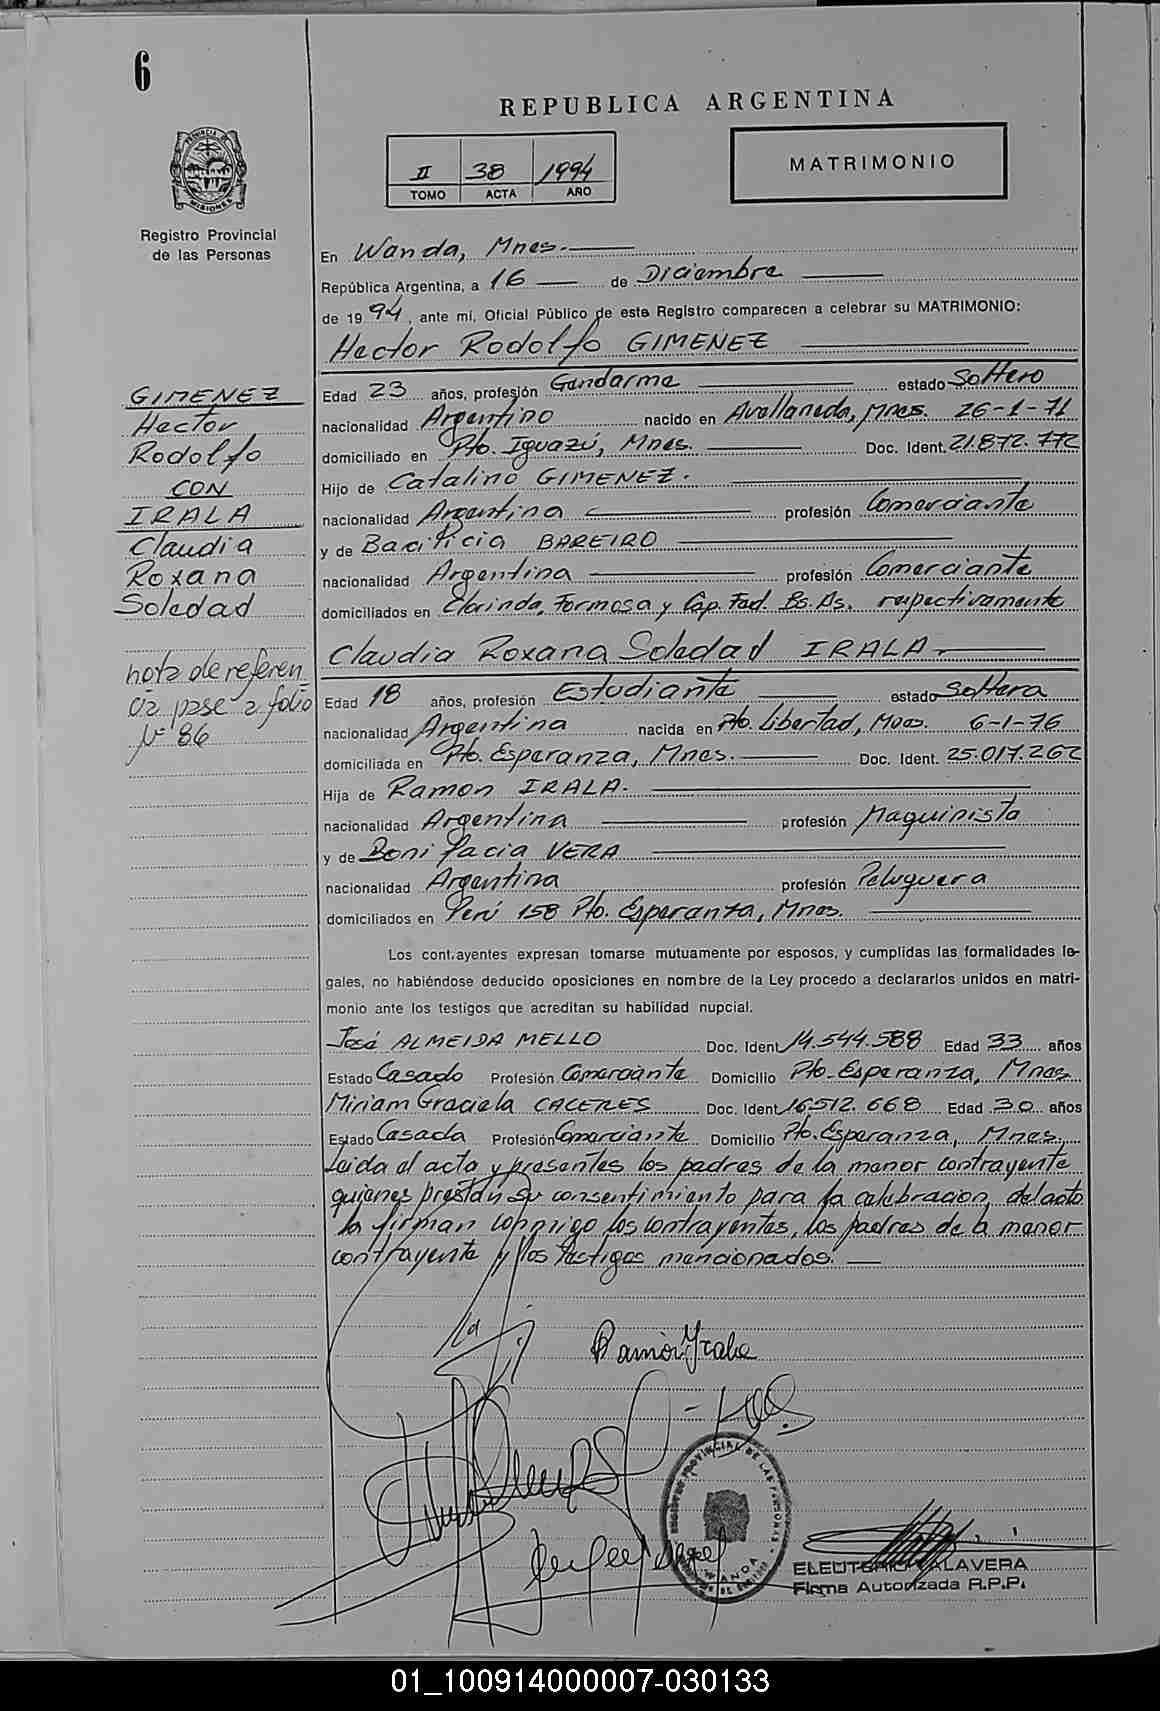 6
REPUBLICA ARGENTINA
II 38 1994
TOMO ACTA AÑO
MATRIMONIO
PROVINCIA DE MISIONES
Registro Provincial
de las Personas
En Wanda, Mnes.
República Argentina, a 16 de Diciembre
de 1994, ante mí, Oficial Público de este Registro comparecen a celebrar su MATRIMONIO:
Hector Rodolfo GIMENEZ
GIMENEZ
Hector
Rodolfo
CON
IRALA
Claudia
Roxana
Soledad
nota de referen
cia pase a folio
Nº 86
Edad 23 años, profesión Gendarme estado Soltero
nacionalidad Argentino nacido en Avellaneda, Mnes. 26-1-71
domiciliado en Pto. Iguazú, Mnes. Doc. Ident. 21.872.772
Hijo de Catalino GIMENEZ.
nacionalidad Argentina profesión Comerciante
y de Bacificia BAREIRO
nacionalidad Argentina profesión Comerciante
domiciliados en Clorinda, Formosa y Cap. Fed. Bs. As. respectivamente
Claudia Roxana Soledad IRALA.
Edad 18 años, profesión Estudiante estado Soltera
nacionalidad Argentina nacida en Pto. Libertad, Mnes. 6-1-76
domiciliada en Pto. Esperanza, Mnes. Doc. Ident. 25.017.262
Hija de Ramon IRALA.
nacionalidad Argentina profesión Maquinista
y de Bonifacia VERA
nacionalidad Argentina profesión Peluquera
domiciliados en Perú 158 Pto. Esperanza, Mnes.
Los contrayentes expresan tomarse mutuamente por esposos, y cumplidas las formalidades le-
gales, no habiéndose deducido oposiciones en nombre de la Ley procedo a declararlos unidos en matri-
monio ante los testigos que acreditan su habilidad nupcial.
José ALMEIDA MELLO Doc. Ident 14.544.588 Edad 33 años
Estado Casado Profesión Comerciante Domicilio Pto. Esperanza, Mnes
Miriam Graciela CACERES Doc. Ident 16.512.668 Edad 30 años
Estado Casada Profesión Comerciante Domicilio Pto. Esperanza, Mnes.
Leida el acta y presentes los padres de la menor contrayente
quienes prestan su consentimiento para la celebracion del acto
la firman conmigo los contrayentes, los padres de la menor
contrayente y los testigos mencionados.
Ramón Yrala
WANDA
ELEUTERIO TALAVERA
Firma Autorizada R.P.P.
01_100914000007-030133